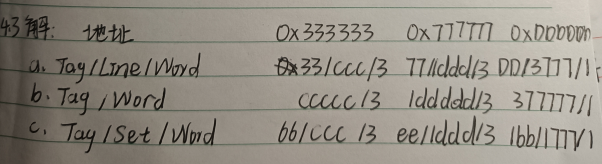 4.3 解: 地址 0x333333 0x777777 0xDDDDDD
a. Tag/Line/Word 33/ccc/3 77/1ddd/3 DD/3777/1
b. Tag/Word ccccc/3 1ddddd/3 377777/1
c. Tag/Set/Word 66/ccc/3 ee/1ddd/3 1bb/1777/1